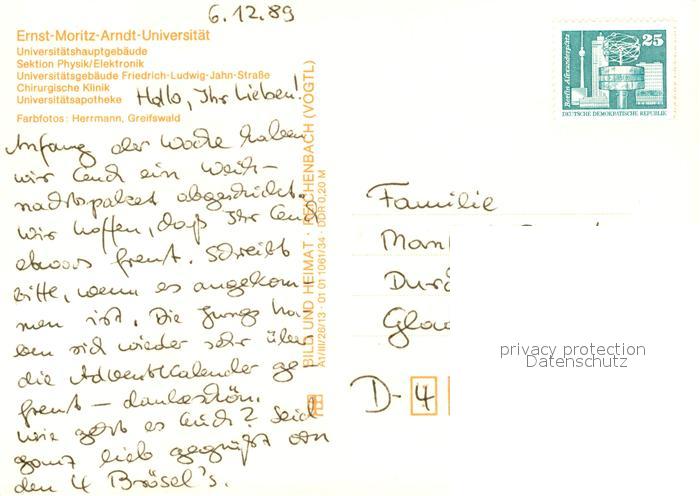 6.12.89
Ernst-Moritz-Arndt-Universität
Universitätshauptgebäude
Sektion Physik/Elektronik
Universitätsgebäude Friedrich-Ludwig-Jahn-Straße
Chirurgische Klinik
Universitätsapotheke
Farbfotos: Herrmann, Greifswald
Hallo, Ihr Lieben!
Anfang der Woche haben
wir Euch ein Weih-
nachtspaket abgeschickt.
Wir hoffen, daß Ihr Euch
etwas freut. Schreibt
bitte, wenn es angekom-
men ist. Die Jungs ha-
ben sich wieder sehr über
die Adventskalender ge-
freut — dankeschön.
Wie geht es Euch? Seid
ganz lieb gegrüßt von
den 4 Brösel's.
BILD UND HEIMAT · REICHENBACH (VOGTL)
A1/III/26/13 · 01 01 1061/34 · DDR 0,20 M
Berlin Alexanderplatz
25
DEUTSCHE DEMOKRATISCHE REPUBLIK
Familie
D-4
privacy protection
Datenschutz